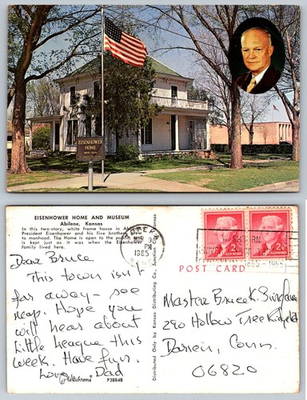 EISENHOWER
HOME
EISENHOWER HOME AND MUSEUM
Abilene, Kansas
In this two-story, white frame house in
President Eisenhower and his five brothers
to manhood. The Home is open to the public and is
kept just as it was when the Eisenhower
Family lived here.
Dear Bruce
This town isn't
far away - see
map. Hope you
will hear about
Little League this
week. Have fun.
Love, Dad
P38848
Distributed Only by Kansas Distributing Co.
1965
POST CARD
Master Bruce K. Bingham
290 Hollow Tree Ridge Rd
Darien, Conn.
06820